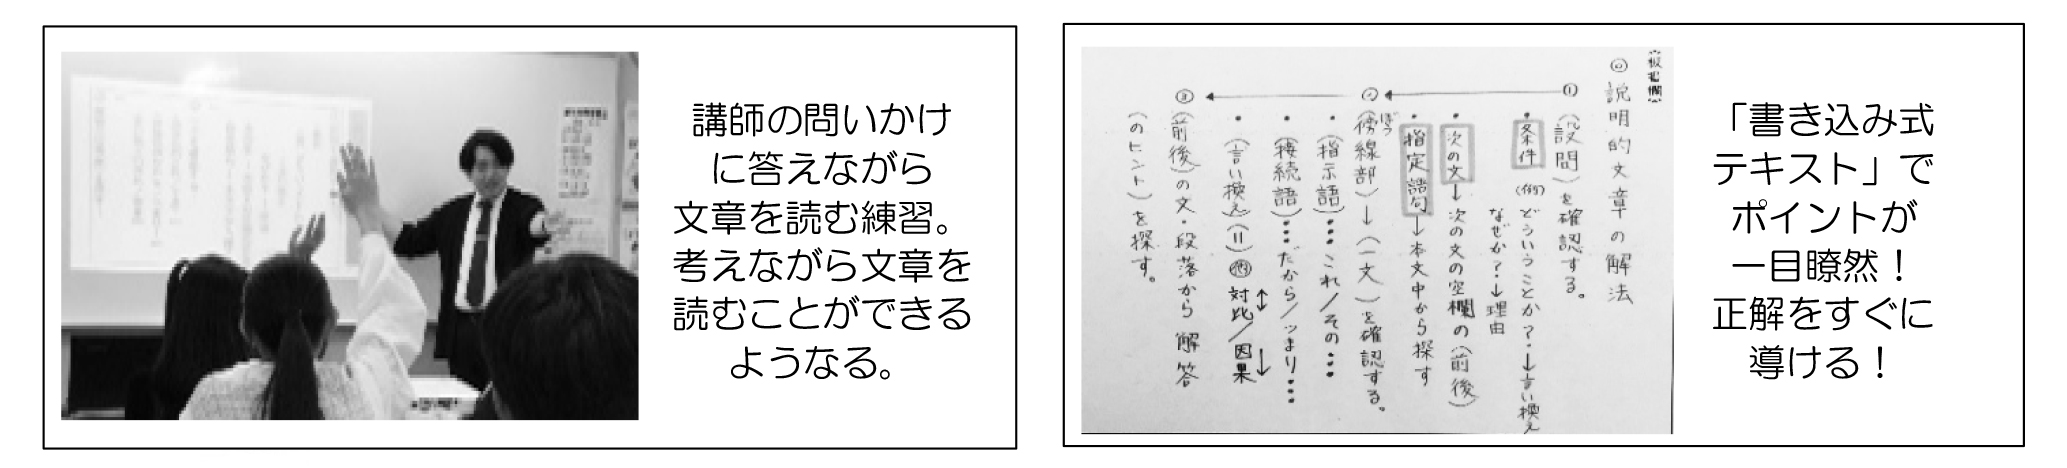 講師の問いかけ
に答えながら
文章を読む練習。
考えながら文章を
読むことができる
ようなる。
（板書欄）
◎説明的文章の解法
①（設問）を確認する。
・条件（例）どういうことか？→言い換え
なぜか？→理由
・次の文→次の文の空欄の（前後）
・指定語句→本文中から探す
②（傍線部）→（一文）を確認する。
ぼう
・（指示語）…これ／その…
・（接続語）…だから／つまり…
・（言い換え）（＝）対比／因果
③（前後）の文・段落から解答
（のヒント）を探す。
「書き込み式
テキスト」で
ポイントが
一目瞭然！
正解をすぐに
導ける！